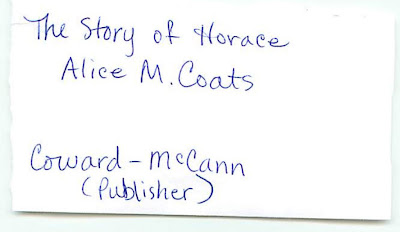 The Story of Horace
Alice M. Coats
Coward - McCann
(Publisher)